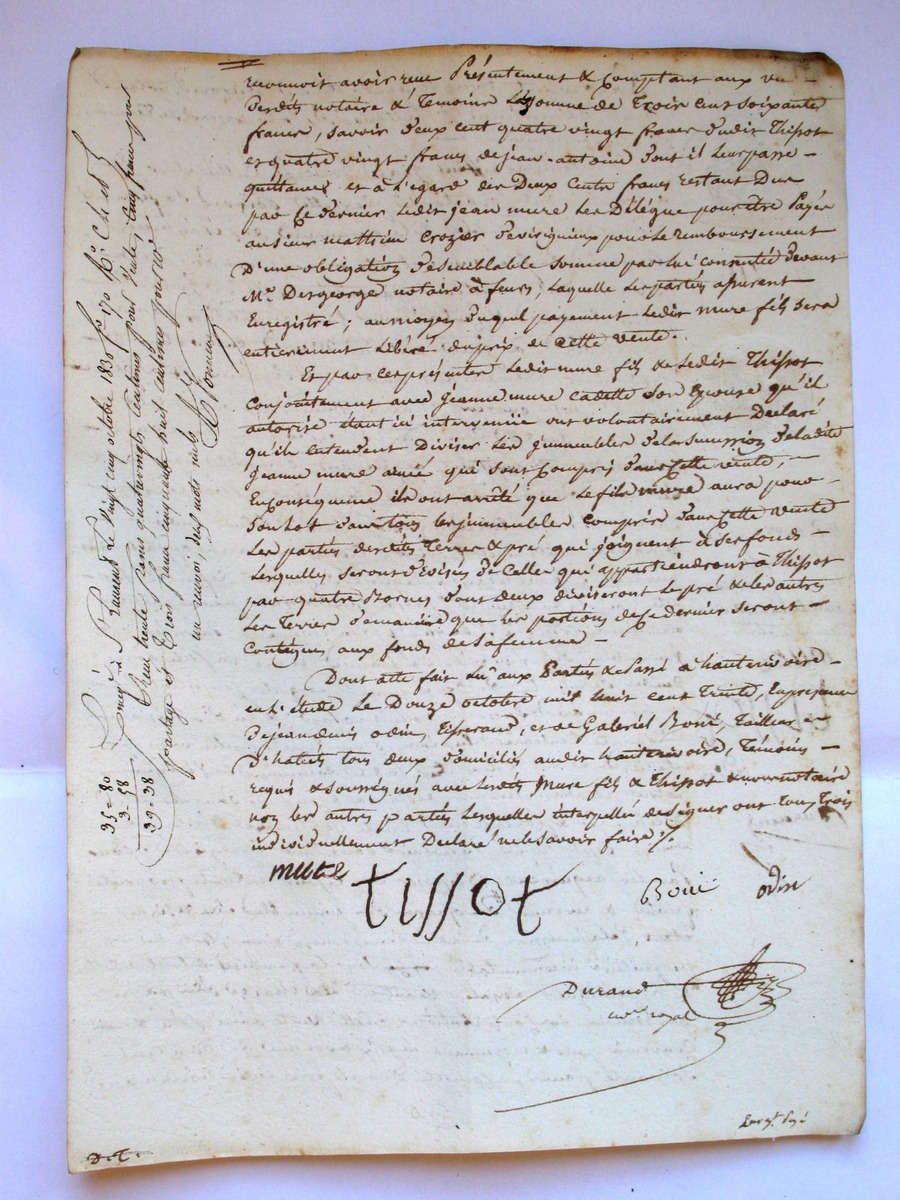 reconnoit avoir reçu Présentement & Comptant aux vu
desdits notaire & Temoins La somme de Trois cent soixante
francs, savoir deux cent quatre vingt francs dudit Thissot
et quatre vingt francs de jean-antoine dont il leur passe
quittance et à L'egard des Deux Cents francs restant Dus
par Ce dernier Ledit jean mure Les Délégue pour être Payés
au sieur mathieu Crozier de virigneux pour Le Remboursement
D'une obligation de semblable somme par lui consentie devant
Me. Desgeorge notaire à feurs, Laquelle Les parties assurent
Enregistré; au moyen duquel payement Ledit mure fils sera
entierement Libéré du prix de Cette vente.
Et par ces présentes Ledit mure fils & Ledit Thissot
Conjointement avec jeanne mure cadette son Epouse qu'il
autorise étant ici intervenue ont volontairement Déclaré
qu'ils entendent Diviser Les immeubles de la succession de ladite
jeanne mure ainée qui sont Compris dans Cette vente,
En conséquence ils ont arrêté que Le fils mure aura pour
son lot dans tous les immeubles compris dans Cette vente
Les parties desdits Terres & pré qui joignent à ses fonds
Lesquelles seront divisés de Celles qui appartiendront à Thissot
par quatre Bornes dont deux diviseront Le pré & les autres
Les Terres de manière que les portions de Ce dernier seront
Contigues aux fonds de sa femme
Dont acte fait Lu aux Parties & Passé à hauterivoire
en L'étude Le Douze octobre mil huit cent Trente, En présence
de jean denis odin, Tisserand, et de Gabriel Boni, Tailleur
D'habits tous deux domiciliés audit hauterivoire, Témoins
requis & soussignés avec Lesdits Mure fils & Thissot & nous notaire
non les autres parties Lesquelles interpellé de signer ont Tous Trois
individuellement Déclaré ne le savoir faire /.
mure tissot Boni odin
Durand
nre. royal
Enregt. Payé
D. T.
Enregé. à St. Laurent Le Vingt cinq octobre 1830 fo. 170 Ro. C
Reçu trente cinq francs quatrevingts centimes pour vente, cinq francs pour
partage et Trois francs cinquante huit centimes pour le
un renvoi, deux mots nuls
35 - 80
3 - 58
39 - 38